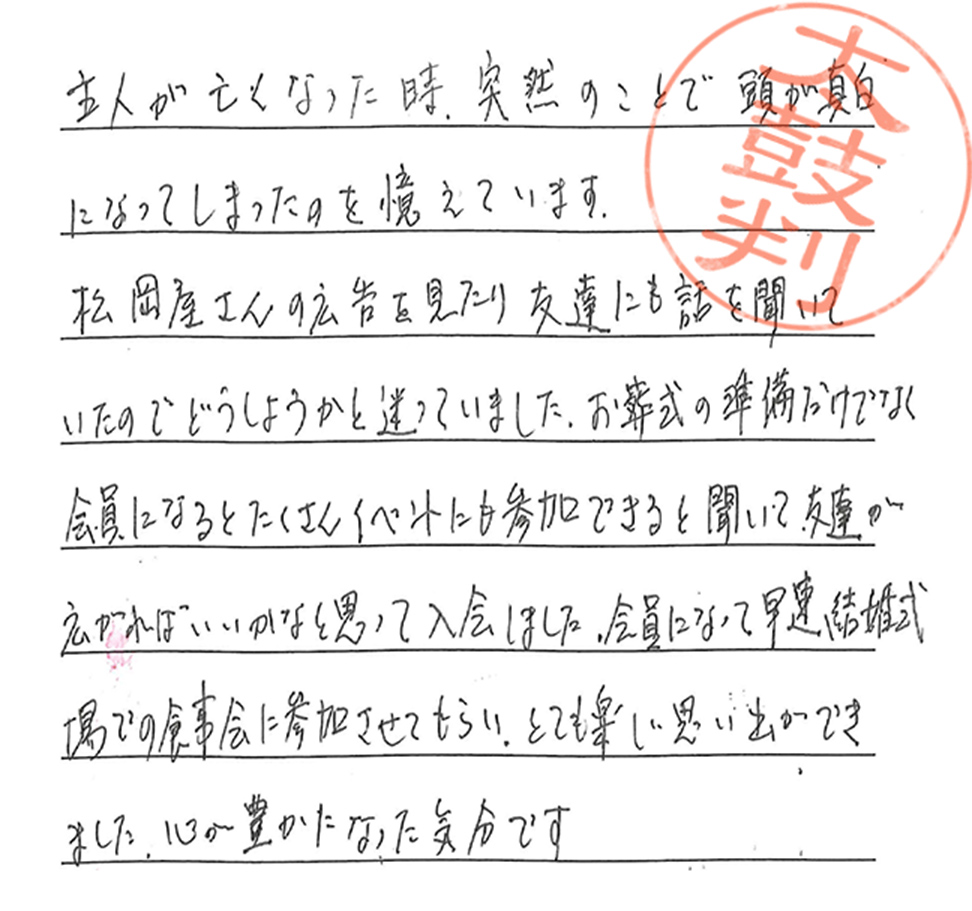 主人が亡くなった時、突然のことで頭が真白
になってしまったのを憶えています。
松岡屋さんの広告を見たり友達にも話を聞いて
いたのでどうしようかと迷っていました。お葬式の準備だけでなく
会員になるとたくさんイベントにも参加できると聞いて友達が
広がればいいかなと思って入会しました。会員になって早速結婚式
場での食事会に参加させてもらい、とても楽しい思い出ができ
ました。心が豊かになった気分です
太鼓判